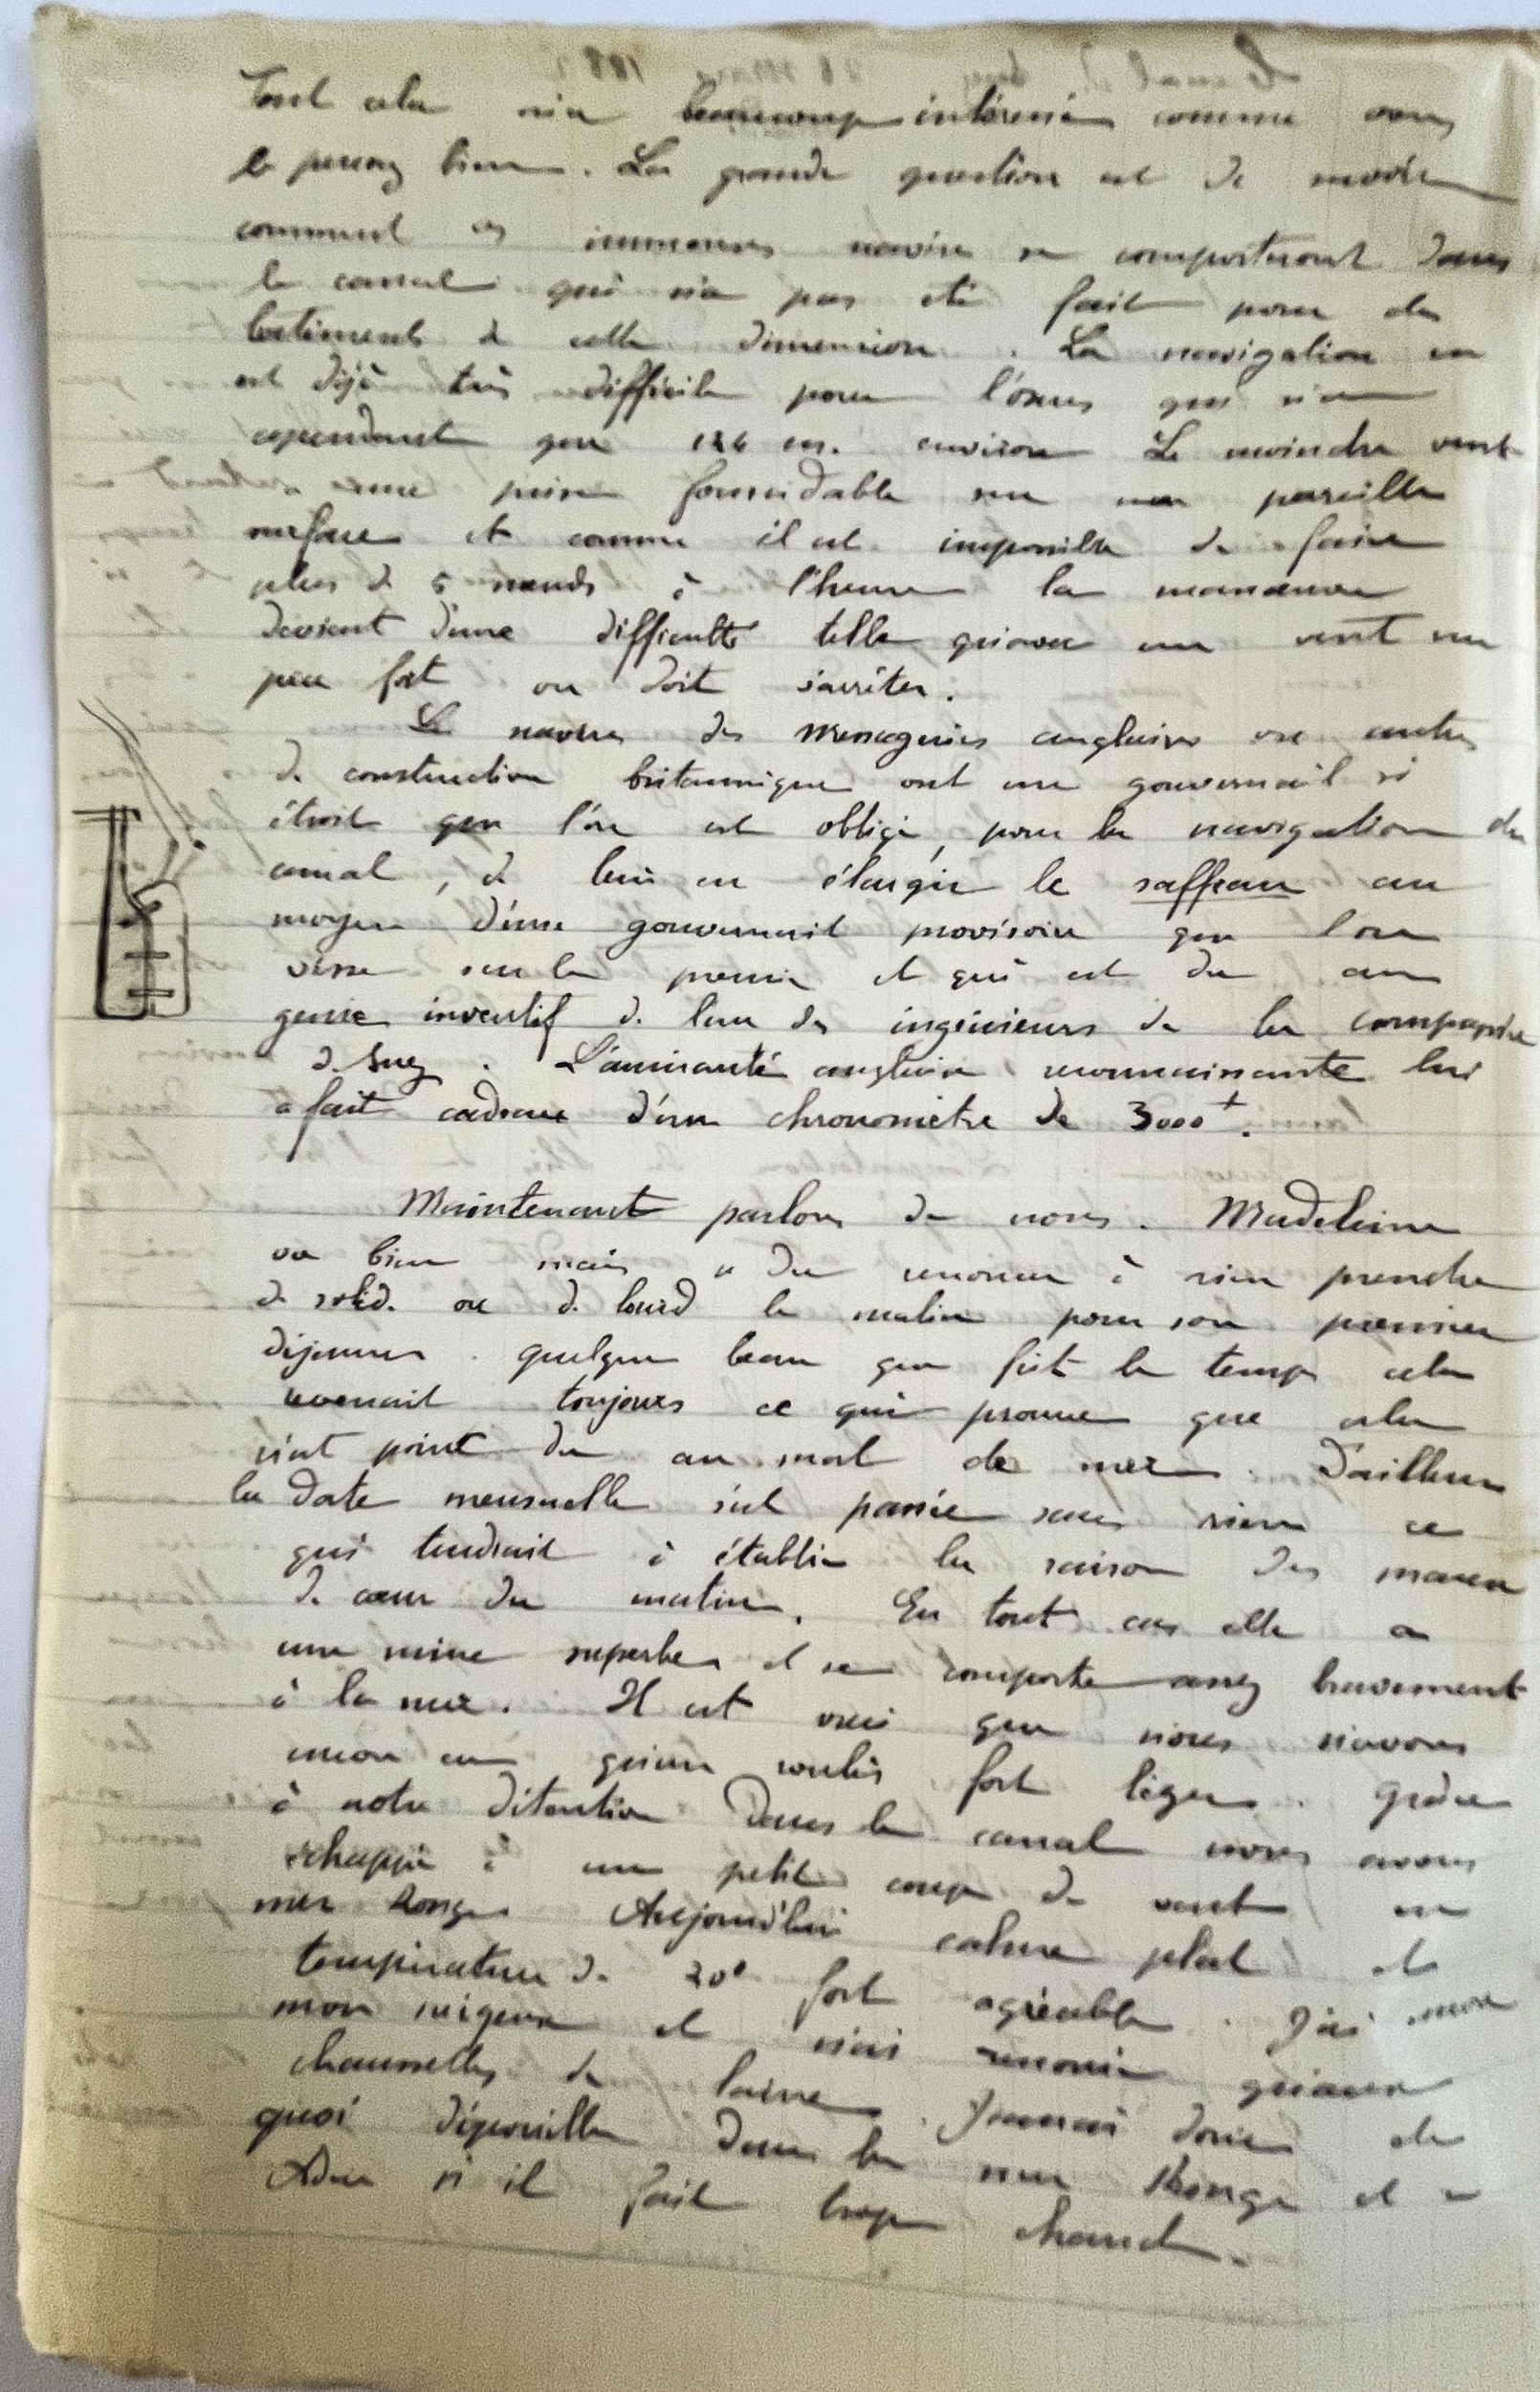 Tout cela m'a beaucoup intéressé comme vous
le pensez bien. La grande question est de savoir
comment ces immenses navires se comporteront dans
le canal qui n'a pas été fait pour des
batiments de cette dimension. La navigation en
est déjà très difficile pour l'Oxus qui n'a
cependant que 126 m. environ Le moindre vent
a une prise formidable sur une pareille
surface et comme il est impossible de faire
plus de 5 nœuds à l'heure la manœuvre
devient d'une difficulté telle qu'avec un vent un
peu fort on doit s'arrêter.
Les navires des Messageries anglaises ou autres
de construction britannique ont un gouvernail si
étroit que l'on est obligé, pour la navigation du
canal, de leur en élargir le saffran au
moyen d'un gouvernail provisoire que l'on
visse sur le premier et qui est du au
genie inventif de l'un des ingénieurs de la compagnie
de Suez. L'amirauté anglaise reconnaissante lui
a fait cadeau d'un chronomètre de 3000f.
Maintenant parlons de nous. Madeleine
va bien mais a du renoncer à rien prendre
de solide ou de lourd le matin pour son premier
déjeuner. quelque beau que fut le temps cela
revenait toujours ce qui prouve que cela
n'est point du au mal de mer. D'ailleurs
la date mensuelle s'est passée sans rien ce
qui tendrait à établir la raison des maux
de cœur du matin. En tout cas elle a
une mine superbe et se comporte assez bravement
à la mer. Il est vrai que nous n'avons
encore eu qu'un roulis fort léger. Grâce
à notre détention dans le canal nous avons
échappé à un petit coup de vent en
mer Rouge. Aujourd'hui calme plat et
température de 20° fort agréable. J'ai encore
mon et n'ai renoncé qu'aux
chaussettes de laine. J'aurai donc de
quoi dépouiller dans la mer Rouge et à
Aden si il fait trop chaud.